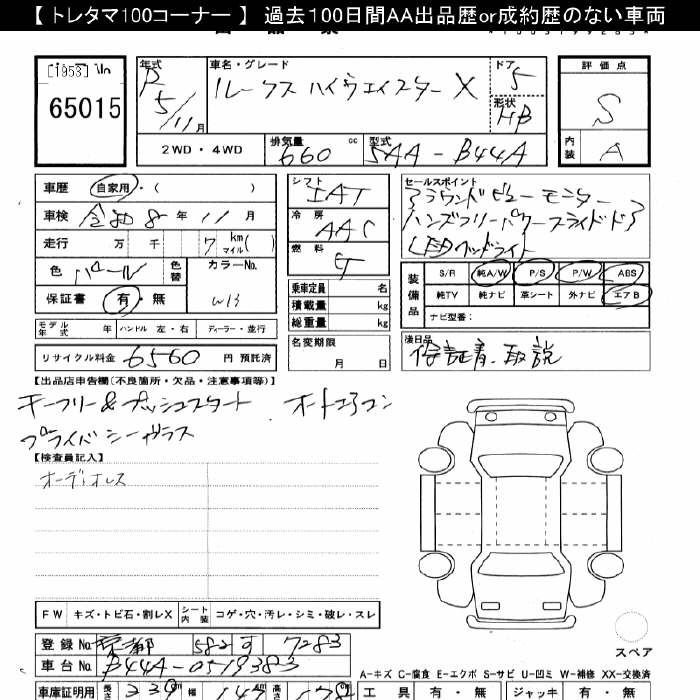 【 トレタマ100コーナー 】 過去100日間AA出品歴or成約歴のない車両
65015
年式
R
5/11月
車名・グレード
ルークス ハイウェイスター X
ドア
5
形状
HB
評価点
S
内装
A
2WD・4WD
排気量
660
cc
型式
5AA-B44A
車歴
自家用・( )
車検
令和8年11月
走行
万 千 7 km マイル( )
色
パール
色替
カラーNo.
W13
保証書
有・無
モデル年式 年
ハンドル 左・右
ディーラー・並行
リサイクル料金
6560
円 預託済
シフト
IAT
冷房
AAC
燃料
G
乗車定員 名
積載量 kg
総重量 kg
名変期限
月 日
セールスポイント
アラウンドビューモニター
ハンズフリーパワースライドドア
LEDヘッドライト
装備品
S/R 純A/W P/S P/W ABS
純TV 純ナビ 革シート 外ナビ エアB
ナビ型番:
後日品
保証書、取説
【出品店申告欄(不良箇所・欠品・注意事項等)】
キーフリー&プッシュスタート オートエアコン
プライバシーガラス
【検査員記入】
オーディオレス
FW キズ・トビ石・割レX
シート内装 コゲ・穴・汚レ・シミ・破レ・スレ
登録No.
京都 582 す 7283
車台No.
B44A-0519383
スペア
A-キズ C-腐食 E-エクボ S-サビ U-凹ミ W-補修 XX-交換済
車庫証明用
長さ 339 幅 147 高さ 178
工具 有・無 ジャッキ 有・無